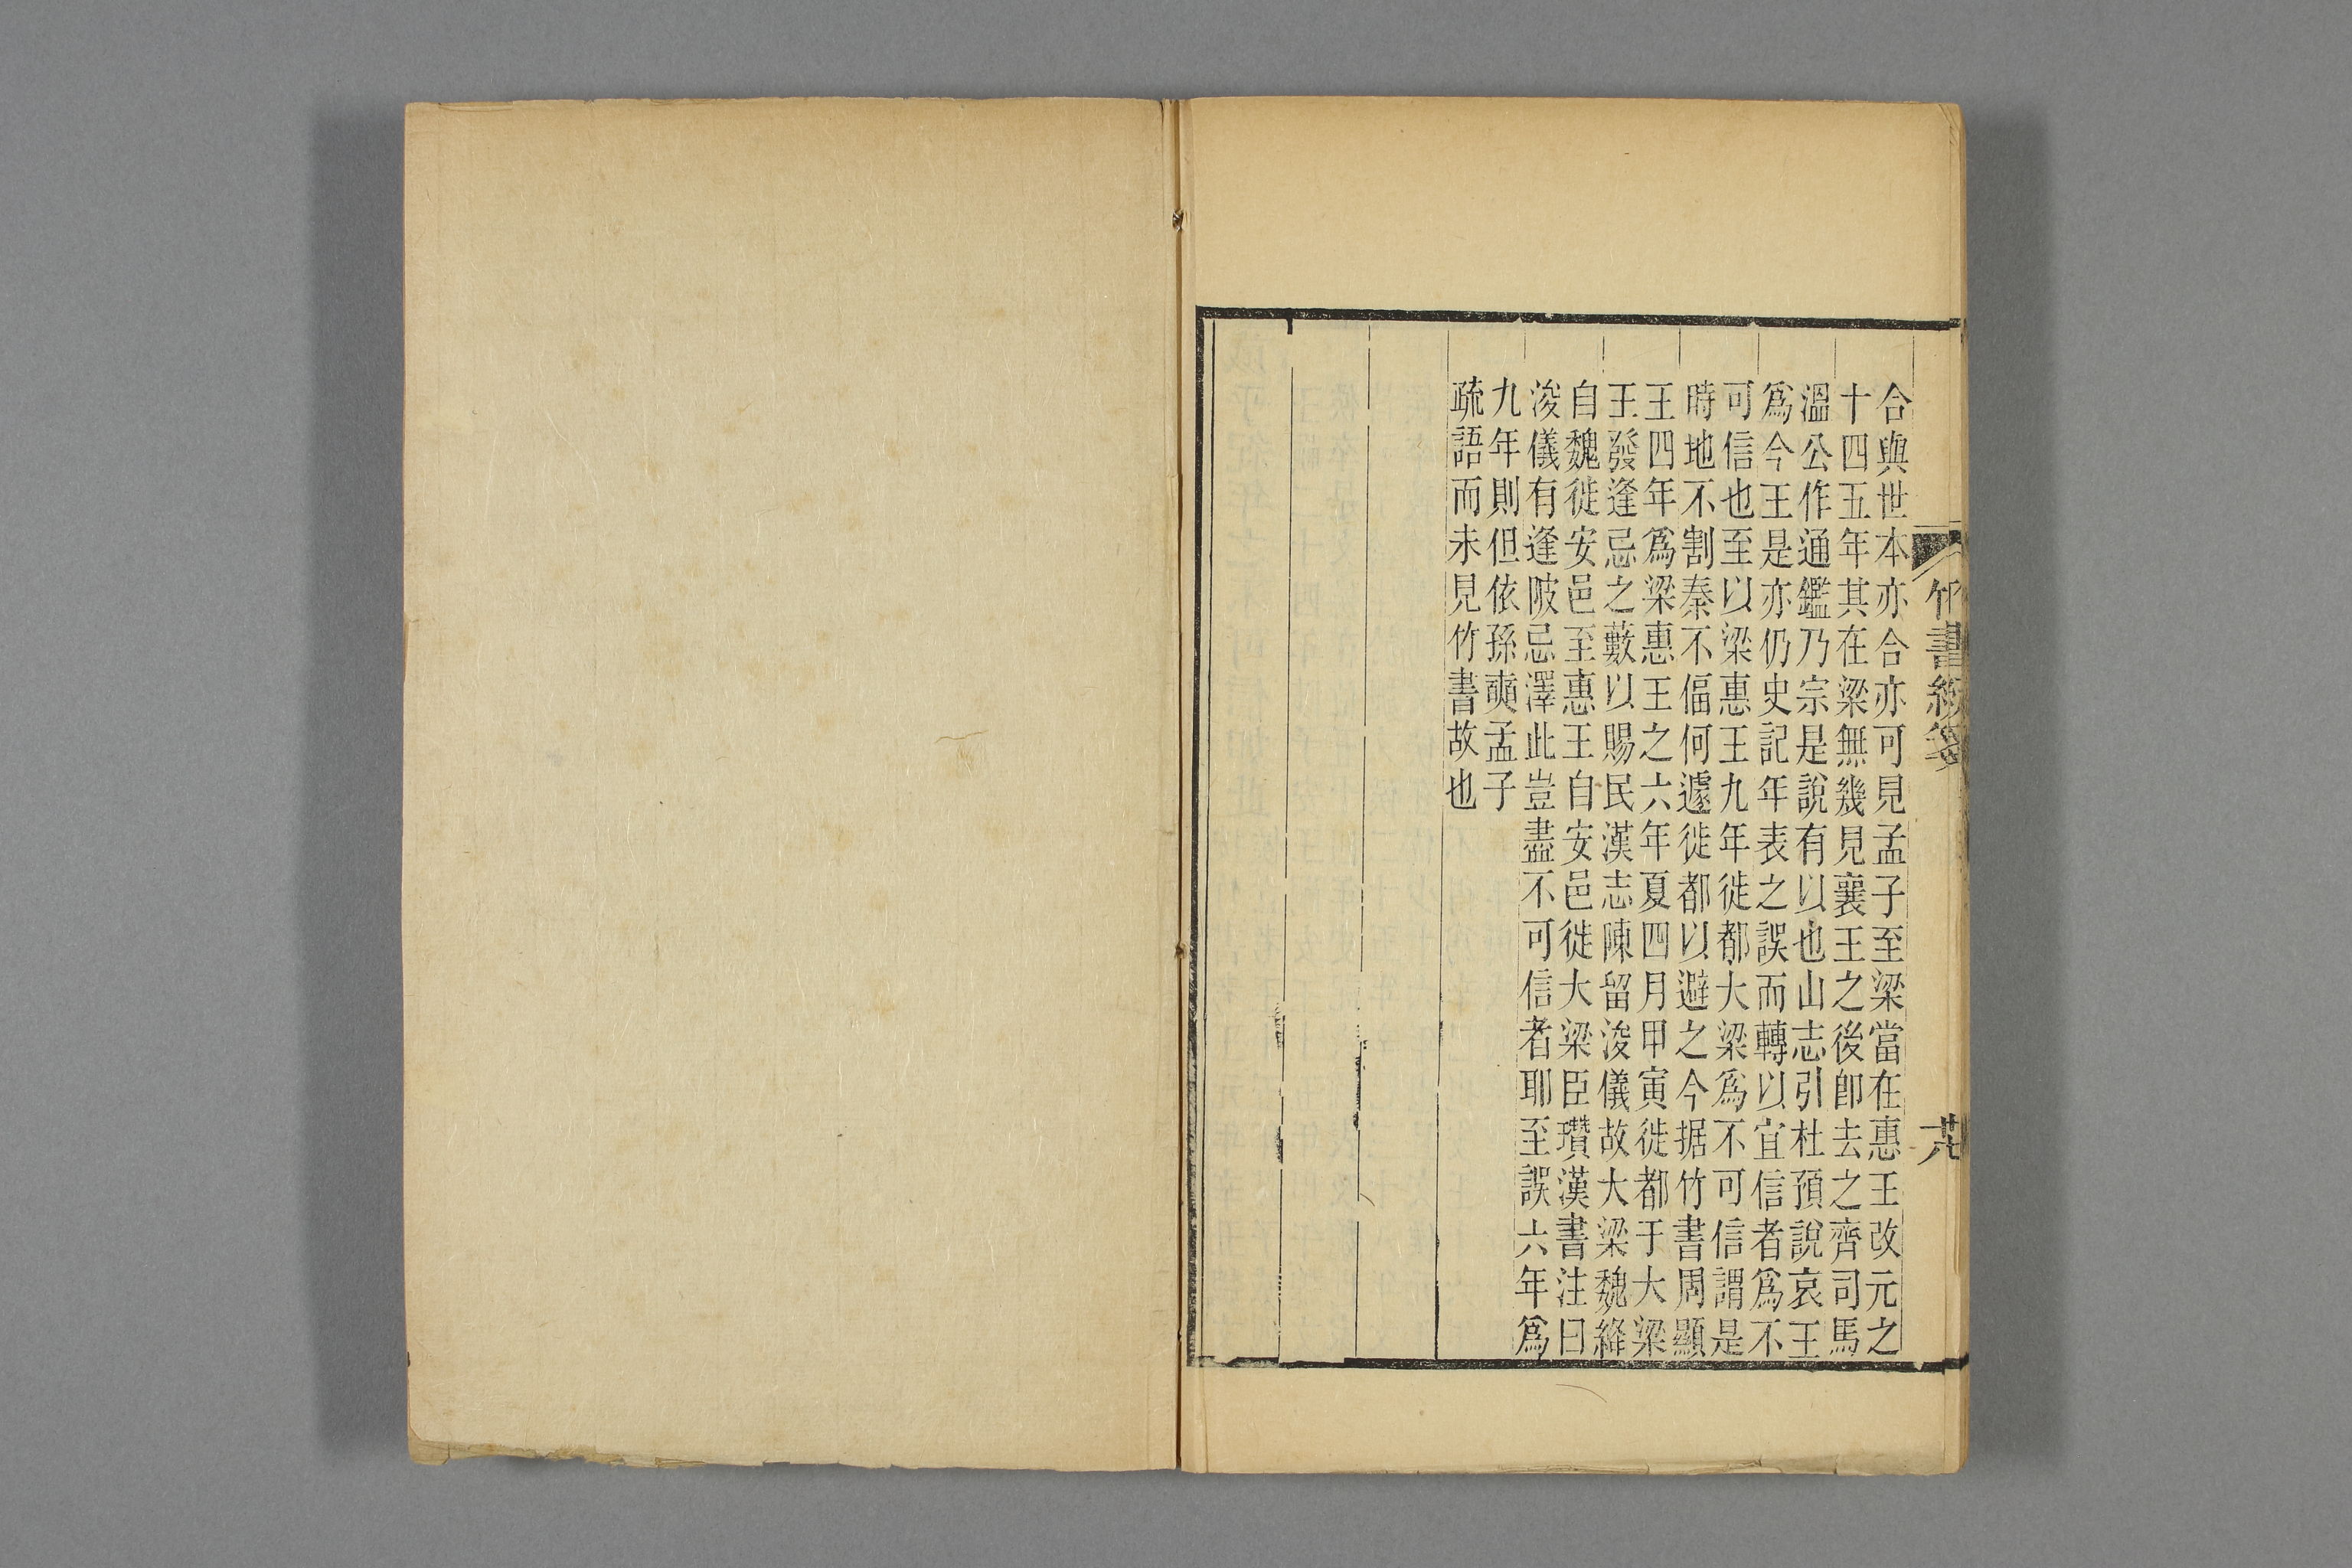 竹書統箋
合與世本亦合亦可見孟子至梁當在惠王改元之
十四五年其在梁無幾見襄王之後卽去之齊司馬
溫公作通鑑乃宗是說有以也山志引杜預說哀王
爲今王是亦仍史記年表之誤而轉以宜信者爲不
可信也至以梁惠王九年徙都大梁爲不可信謂是
時地不割秦不偪何遽徙都以避之今据竹書周顯
王四年爲梁惠王之六年夏四月甲寅徙都于大梁
王發逢忌之藪以賜民漢志陳留浚儀故大梁魏絳
自魏徙安邑至惠王自安邑徙大梁臣瓚漢書注曰
浚儀有逢陂忌澤此豈盡不可信者耶至誤六年爲
九年則但依孫奭孟子
疏語而未見竹書故也